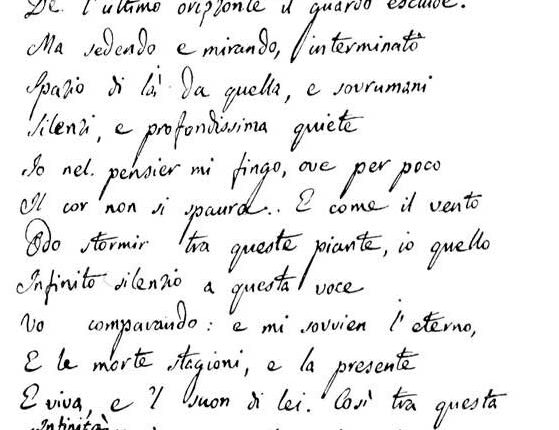 De l'ultimo orizzonte il guardo esclude.
Ma sedendo e mirando, interminato
Spazio di là da quella, e sovrumani
Silenzi, e profondissima quiete
Io nel pensier mi fingo, ove per poco
Il cor non si spaura.. E come il vento
Odo stormir tra queste piante, io quello
Infinito silenzio a questa voce
Vo comparando: e mi sovvien l'eterno,
E le morte stagioni, e la presente
E viva, e 'l suon di lei. Così tra questa
Infinità